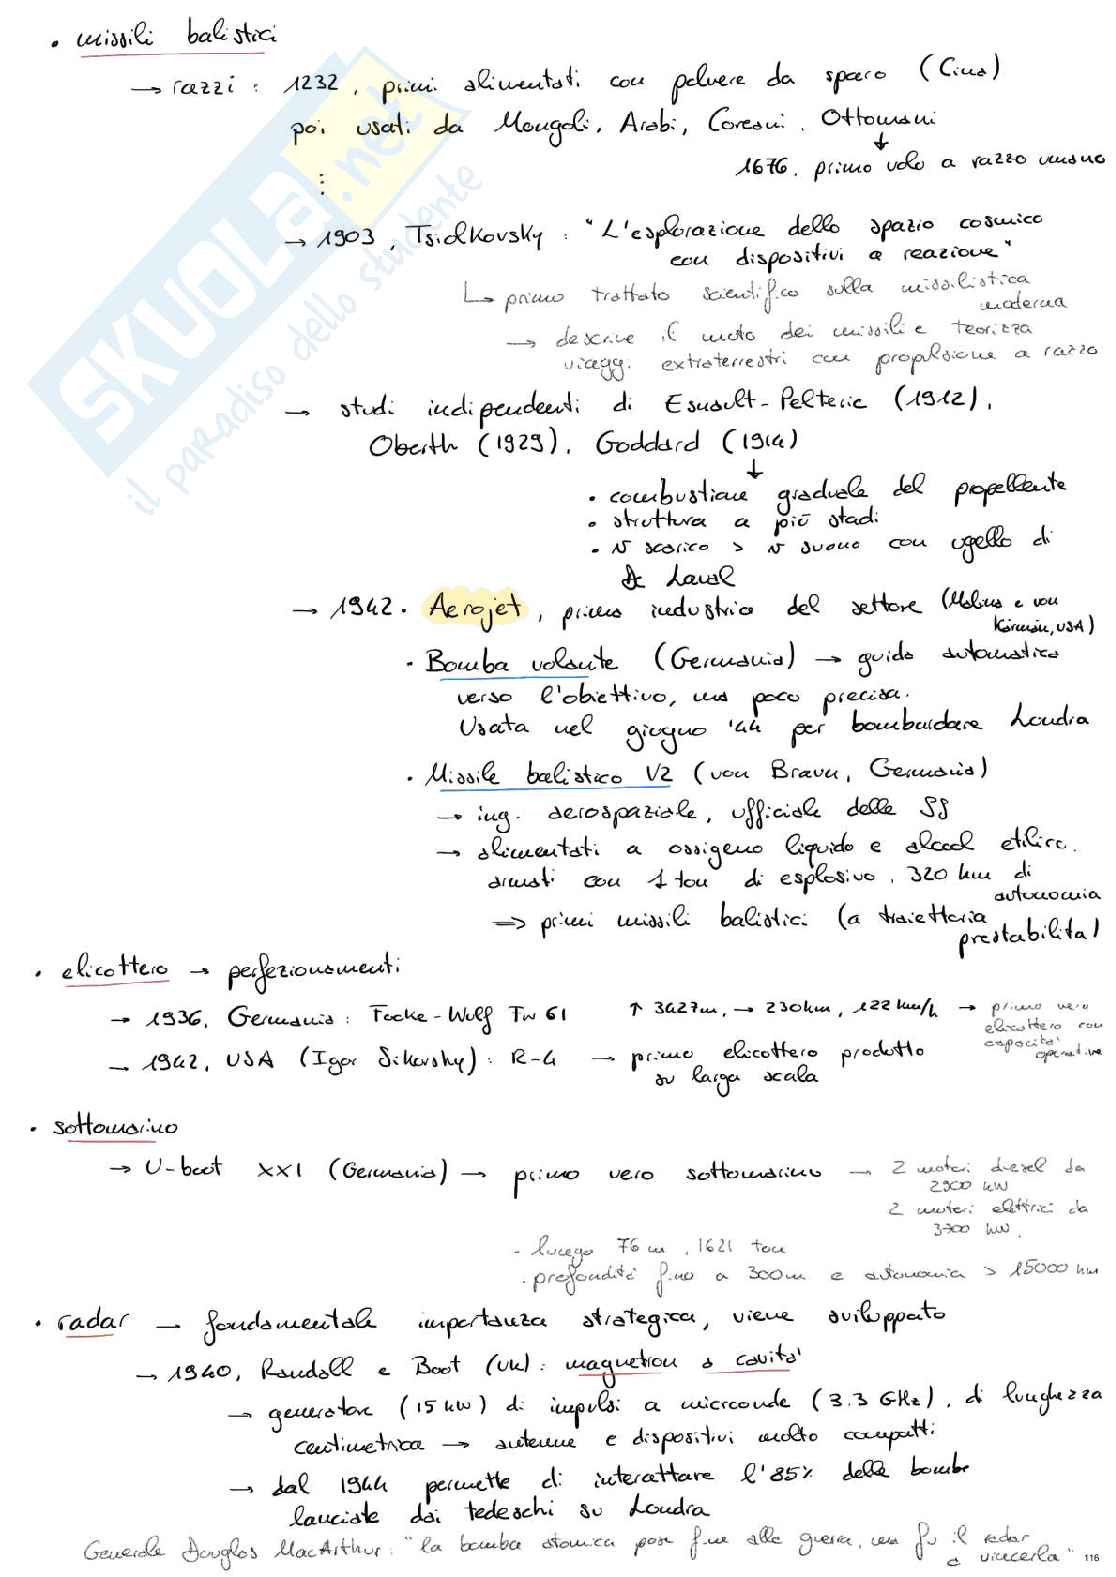 • missili balistici
→ razzi : 1232, primi alimentati con polvere da sparo (Cina)
poi usati da Mongoli, Arabi, Coreani, Ottomani
↓
1676, primo volo a razzo umano
⋮
→ 1903, Tsiolkovsky : "L'esplorazione dello spazio cosmico
con dispositivi a reazione"
↳ primo trattato scientifico sulla missilistica
moderna
→ descrive il moto dei missili e teorizza
viaggi extraterrestri con propulsione a razzo
→ studi indipendenti di Esnault-Pelterie (1912),
Oberth (1929), Goddard (1914)
↓
• combustione graduale del propellente
• struttura a più stadi
• v scarico > v suono con ugello di
de Laval
→ 1942. Aerojet, prima industria del settore (Malina e von
Kármán, USA)
• Bomba volante (Germania) → guida automatica
verso l'obiettivo, ma poco precisa.
Usata nel giugno '44 per bombardare Londra
• Missile balistico V2 (von Braun, Germania)
→ ing. aerospaziale, ufficiale delle SS
→ alimentati a ossigeno liquido e alcool etilico,
armati con 1 ton di esplosivo, 320 km di
autonomia
⇒ primi missili balistici (a traiettoria
prestabilita)
• elicottero → perfezionamenti
→ 1936, Germania: Focke-Wulf Fw 61 ↑ 3427m, → 230km, 122 km/h → primo vero
elicottero con
capacità
operative
→ 1942, USA (Igor Sikorsky): R-4 → primo elicottero prodotto
su larga scala
• sottomarino
→ U-boot XXI (Germania) → primo vero sottomarino → 2 motori diesel da
2900 kW
2 motori elettrici da
3700 kW.
- lungo 76 m, 1621 ton
. profondità fino a 300m e autonomia > 15000 km
• radar → fondamentale importanza strategica, viene sviluppato
→ 1940, Randall e Boot (UK): magnetron a cavità
→ generatore (15 kW) di impulsi a microonde (3.3 GHz), di lunghezza
centimetrica → antenne e dispositivi molto compatti
→ dal 1944 permette di intercettare l'85% delle bombe
lanciate dai tedeschi su Londra
Generale Douglas MacArthur: "la bomba atomica pose fine alla guerra, ma fu il radar
a vincerla"
116
SKUOLA.net
il paradiso dello studente